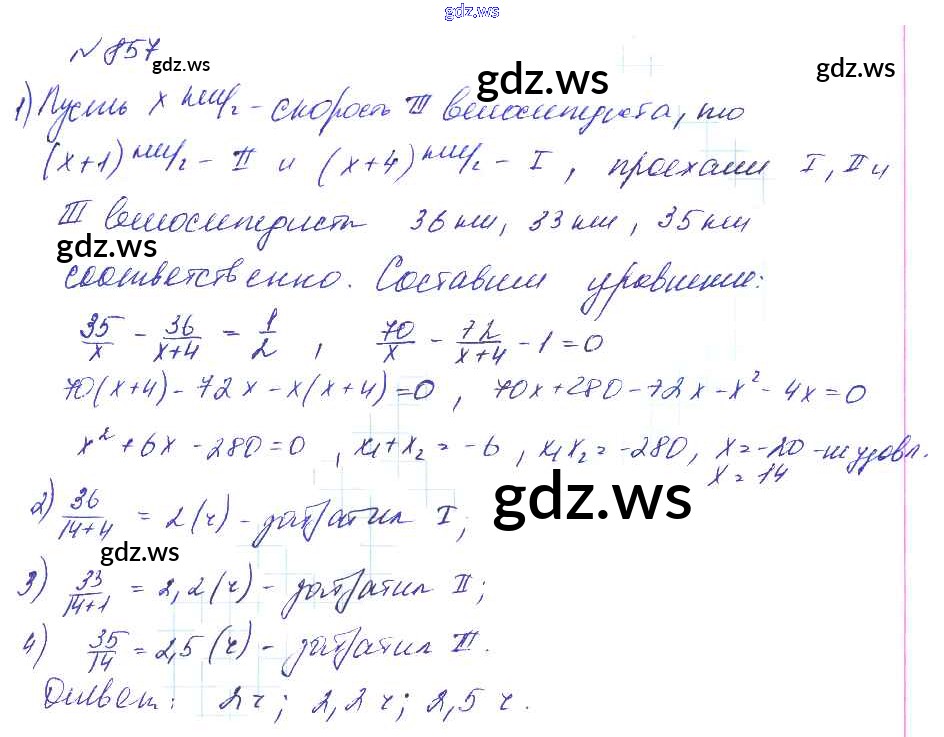 gdz.ws
№ 857
gdz.ws gdz.ws gdz.ws
1) Пусть x км/ч - скорость III велосипедиста, то
(x+1) км/ч - II и (x+4) км/ч - I, проехали I, II и
III велосипедисты 36 км, 33 км, 35 км
gdz.ws
соответственно. Составим уравнение:
35/x - 36/(x+4) = 1/2, 70/x - 72/(x+4) - 1 = 0
70(x+4) - 72x - x(x+4) = 0, 70x + 280 - 72x - x² - 4x = 0
x² + 6x - 280 = 0, x₁ + x₂ = -6, x₁x₂ = -280, x = -20 - не удовл.
x = 14
2) 36/(14+4) = 2 (ч) - затратил I;
gdz.ws
gdz.ws
3) 33/(14+1) = 2,2 (ч) - затратил II;
4) 35/14 = 2,5 (ч) - затратил III.
Ответ: 2 ч; 2,2 ч; 2,5 ч.